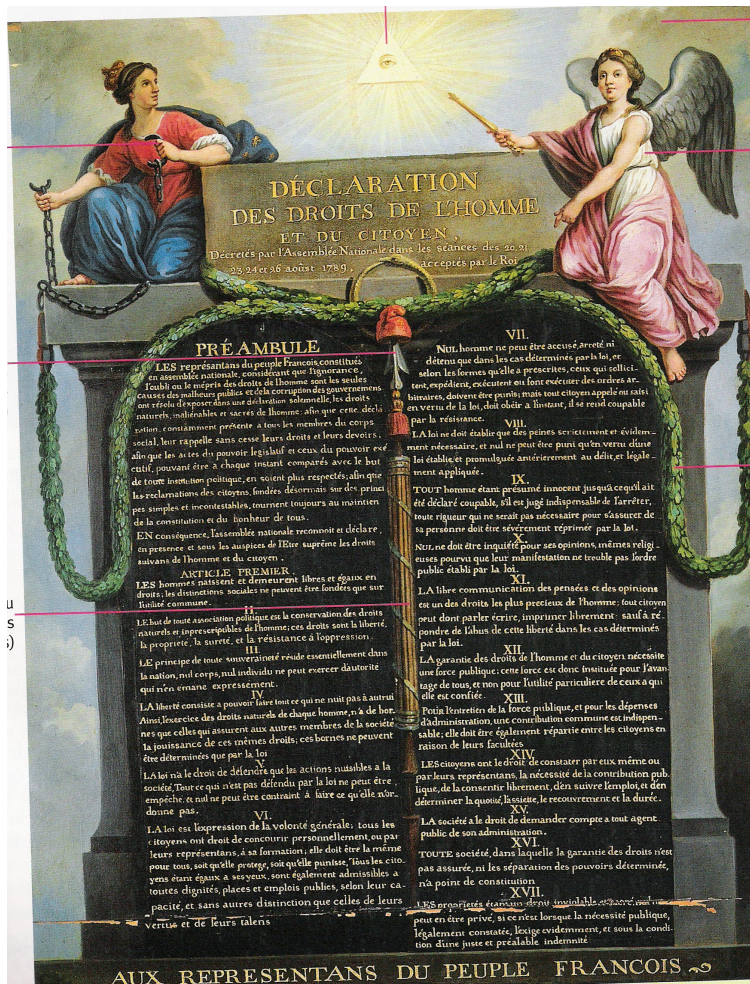 DÉCLARATION
DES DROITS DE L'HOMME
ET DU CITOYEN,
Décretés par l'Assemblée Nationale dans les séances des 20, 21
23, 24 et 26 aoûst 1789, acceptés par le Roi
PRÉAMBULE
LES représentans du peuple François, constitués
en assemblée nationale, considérant que l'ignorance,
l'oubli ou le mépris des droits de l'homme sont les seules
causes des malheurs publics et de la corruption des gouvernemens
ont résolu d'exposer dans une déclaration solemnelle, les droits
naturels, inaliénables et sacrés de l'homme: afin que cette décla
ration, constamment présente a tous les membres du corps
social, leur rappelle sans cesse leurs droits et leurs devoirs;
afin que les actes du pouvoir législatif et ceux du pouvoir exé
cutif, pouvant être à chaque instant comparés avec le but
de toute institution politique, en soient plus respectés; afin que
les reclamations des citoyens, fondées désormais sur des princi
pes simples et incontestables, tournent toujours au maintien
de la constitution et du bonheur de tous.
EN conséquence, l'assemblée nationale reconnoit et déclare,
en présence et sous les auspices de l'Etre suprême les droits
suivans de l'homme et du citoyen.
ARTICLE PREMIER.
LES hommes naissent et demeurent libres et égaux en
droits; les distinctions sociales ne peuvent être fondées que sur
l'utilité commune.
II.
LE but de toute association politique est la conservation des droits
naturels et imprescriptibles de l'homme; ces droits sont la liberté,
la propriété, la sureté, et la résistance à l'oppression.
III.
LE principe de toute souveraineté réside essentiellement dans
la nation, nul corps, nul individu ne peut exercer d'autorité
qui n'en emane expressement.
IV.
LA liberté consiste a pouvoir faire tout ce qui ne nuit pas à autrui
Ainsi, l'exercice des droits naturels de chaque homme, n'a de bor-
nes que celles qui assurent aux autres membres de la société
la jouissance de ces mêmes droits; ces bornes ne peuvent
être déterminées que par la loi
V.
LA loi n'a le droit de défendre que les actions nuisibles a la
société. Tout ce qui n'est pas défendu par la loi ne peut être
empêché, et nul ne peut être contraint à faire ce qu'elle n'or-
donne pas.
VI.
LA loi est l'expression de la volonté générale; tous les
citoyens ont droit de concourir personnellement, ou par
leurs représentans, à sa formation; elle doit être la même
pour tous, soit qu'elle protege, soit qu'elle punisse, Tous les cito
yens étant égaux a ses yeux, sont également admissibles a
toutes dignités, places et emplois publics, selon leur ca-
pacité, et sans autres distinction que celles de leurs
vertus et de leurs talens
VII.
NUL homme ne peut être accusé, arreté ni
détenu que dans les cas déterminés par la loi, et
selon les formes qu'elle a prescrites, ceux qui sollici-
tent, expédient, exécutent ou font exécuter des ordres ar-
bitraires, doivent être punis; mais tout citoyen appelé ou saisi
en vertu de la loi, doit obéir a l'instant, il se rend coupable
par la résistance.
VIII.
LA loi ne doit établir que des peines strictement et évidem-
ment nécessaire, et nul ne peut être puni qu'en vertu d'une
loi établie et promulguée antérierement au délit et légale-
ment appliquée.
IX.
TOUT homme étant présumé innocent jusqu'a ce qu'il ait
été déclaré coupable, s'il est jugé indispensable de l'arrêter,
toute rigueur qui ne serait pas nécessaire pour s'assurer de
sa personne doit être sévèrement réprimée par la loi.
X.
NUL ne doit être inquiété pour ses opinions, mêmes religi-
euses pourvu que leur manifestation ne trouble pas l'ordre
public établi par la loi.
XI.
LA libre communication des pensées et des opinions
est un des droits les plus precieux de l'homme; tout citoyen
peut donc parler écrire, imprimer librement; sauf a ré-
pondre de l'abus de cette liberté dans les cas déterminés
par la loi.
XII.
LA garantie des droits de l'homme et du citoyen nécessite
une force publique; cette force est donc instituée pour l'avan-
tage de tous, et non pour l'utilité particuliere de ceux a qui
elle est confiée.
XIII.
Pour l'entretien de la force publique, et pour les dépenses
d'administration, une contribution commune est indispen-
sable; elle doit être également répartie entre les citoyens en
raison de leurs facultées
XIV.
LES citoyens ont le droit de constater par eux même ou
par leurs représentans, la nécessité de la contribution pub-
lique, de la consentir librement, d'en suivre l'emploi, et d'en
déterminer la quotité, l'assiette, le recouvrement et la durée.
XV.
LA société a le droit de demander compte a tout agent
public de son administration.
XVI.
TOUTE société, dans laquelle la garantie des droits n'est
pas assurée, ni les séparation des pouvoirs déterminée,
n'a point de constitution
XVII.
LES proprietés étant un droit inviolable et sacré, nul ne
peut en être privé, si ce n'est lorsque la nécessité publique,
légalement constatée, l'exige evidemment, et sous la condi-
tion d'une juste et préalable indemnité
AUX REPRESENTANS DU PEUPLE FRANCOIS